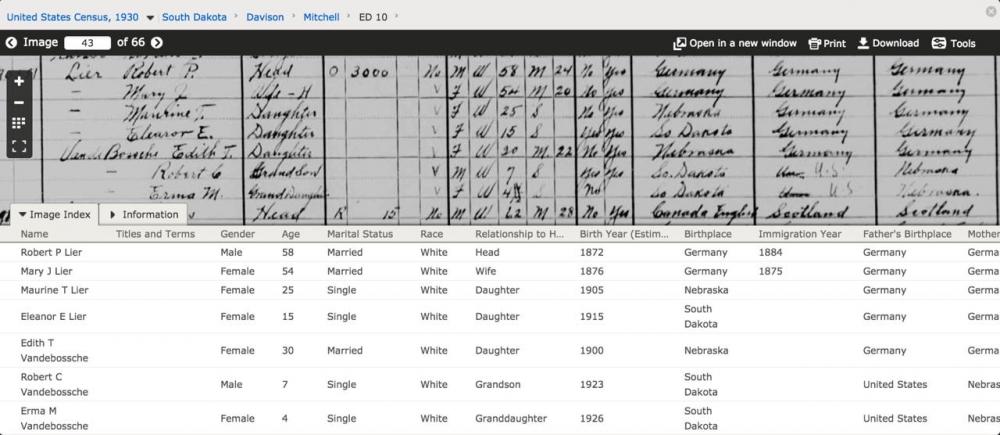 United States Census, 1930 ▾ South Dakota › Davison › Mitchell › ED 10 ›
Image 43 of 66 Open in a new window Print Download Tools
Lier Robert P. Head O 3000 No M W 58 M 24 No Yes Germany Germany Germany
– Mary J. Wife-H V F W 54 M 20 No Yes Germany Germany Germany
– Maurine T. Daughter V F W 25 S No Yes Nebraska Germany Germany
– Eleanor E. Daughter V F W 15 S Yes Yes So Dakota Germany Germany
VandeBossche Edith T. Daughter V F W 30 M 22 No Yes Nebraska Germany Germany
– Robert C Grandson V M W 7 S Yes So. Dakota U.S. Nebraska
– Erma M. Granddaughter V F W 4 S No So Dakota U S Nebraska
Head R 15 No M W 62 M 28 No Yes Canada English Scotland Scotland
Image Index Information
Name Titles and Terms Gender Age Marital Status Race Relationship to H... Birth Year (Estim... Birthplace Immigration Year Father's Birthplace Mother
Robert P Lier Male 58 Married White Head 1872 Germany 1884 Germany Germa
Mary J Lier Female 54 Married White Wife 1876 Germany 1875 Germany Germa
Maurine T Lier Female 25 Single White Daughter 1905 Nebraska Germany Germa
Eleanor E Lier Female 15 Single White Daughter 1915 South Germany Germa
Dakota
Edith T
Vandebossche Female 30 Married White Daughter 1900 Nebraska Germany Germa
Robert C
Vandebossche Male 7 Single White Grandson 1923 South Dakota United States Nebras
Erma M
Vandebossche Female 4 Single White Granddaughter 1926 South Dakota United States Nebras